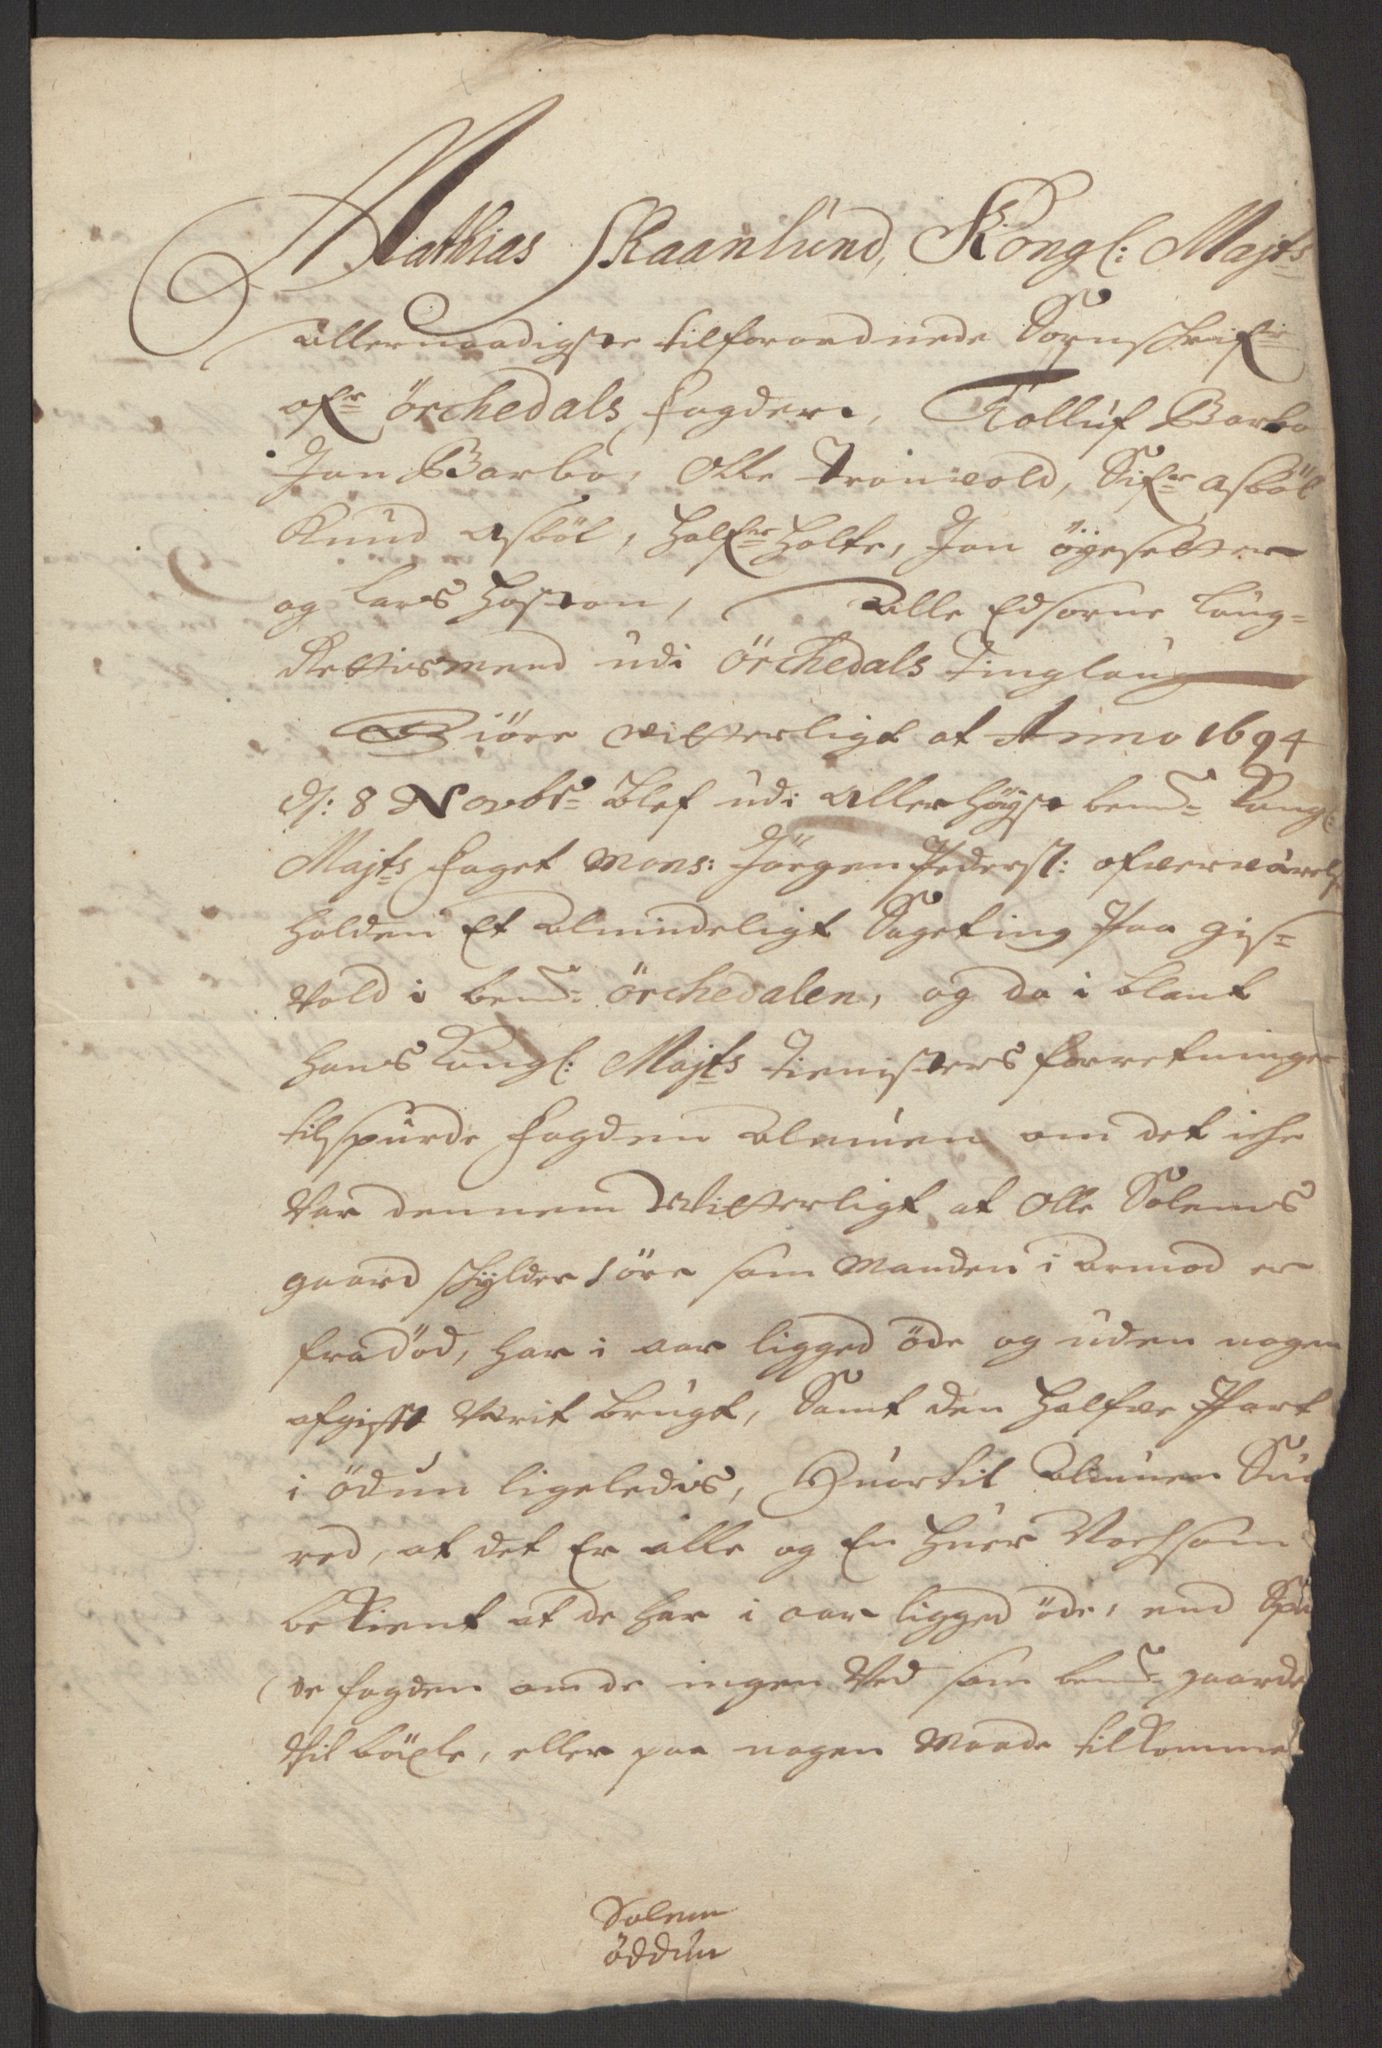 Mathias Skaanlund, Kongl: Majts
allernaadigste tilforordnede Sornschrifr
ofr Örchedals fogderi, Tölluf Barbo
Jon Barbo, Olle Tronvold, Sifr Asböl
Knud Asböl, Halfr Holte, Jon Öÿesetter
og Lars Hoston, Alle Edsorne Laug-
Rettismend udi Örchedals Tinglaug
Giöre Vitterligt at Anno 1694
d: 8 Novbr blef udi Allerhöÿst bemte Kongl:
Majts foget Mons: Jörgen Pederss: ofververelse
holden Et Almindeligt Sageting Paa Gis-
vold i bemte Örchedalen, og da i blant
hans Kongl: Majts Tienisters forretninger
tilspurde fogden Almuen om det iche
Var dennem Vitterligt at Olle Solems
gaard schÿlder 1 öre som Manden i Armod er
fradöd, har i aar ligged öde og uden nogen
afgifft Verit brugt, Samt den halfve Part
i Ödun ligeledis, Huortil Almuen Sua
red, at det Er alle og En huer Nochsom
bekient at de har i aar ligged öde, end Spu
de fogden om de ingen Ved som bemte gaarde
vil böxle, eller paa nogen Maade tilkomme
Solem
öddun